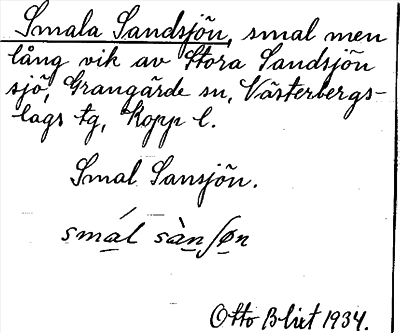 Smala Sandsjön, smal men
lång vik av Stora Sandsjön
sjö, Grangärde sn, Västerbergs-
lags tg, Kopp l.
Smal Sansjön.
smál sàn∫øn
Otto Blixt 1934.